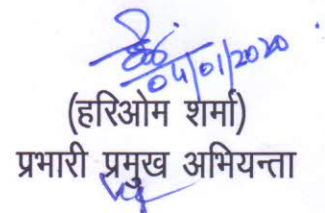 04/01/2020
(हरिओम शर्मा)
प्रभारी प्रमुख अभियन्ता